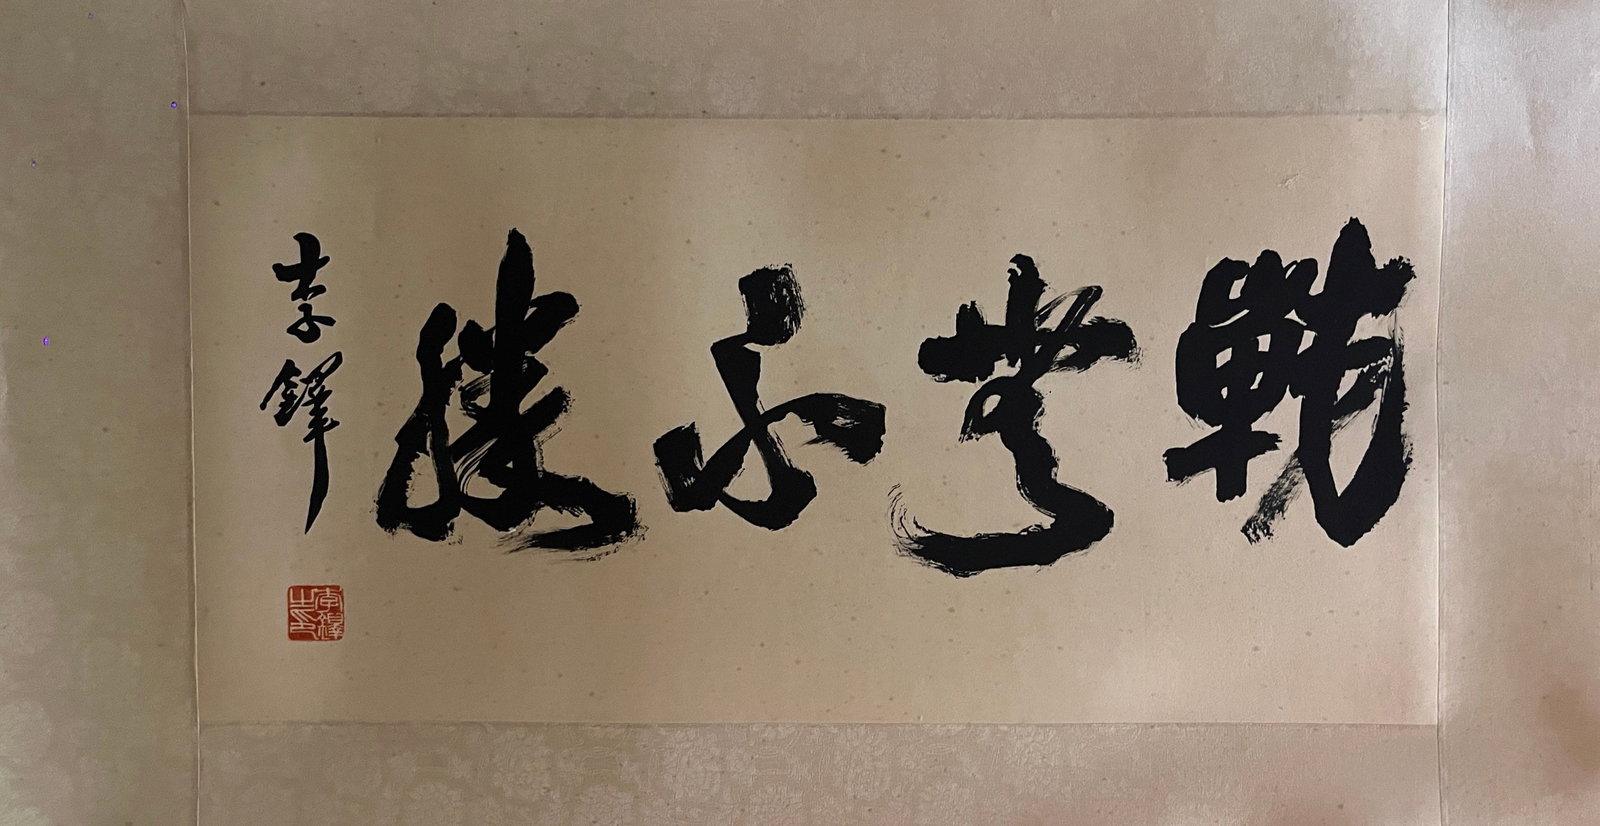 戰無不勝
李鐸
李鐸之印